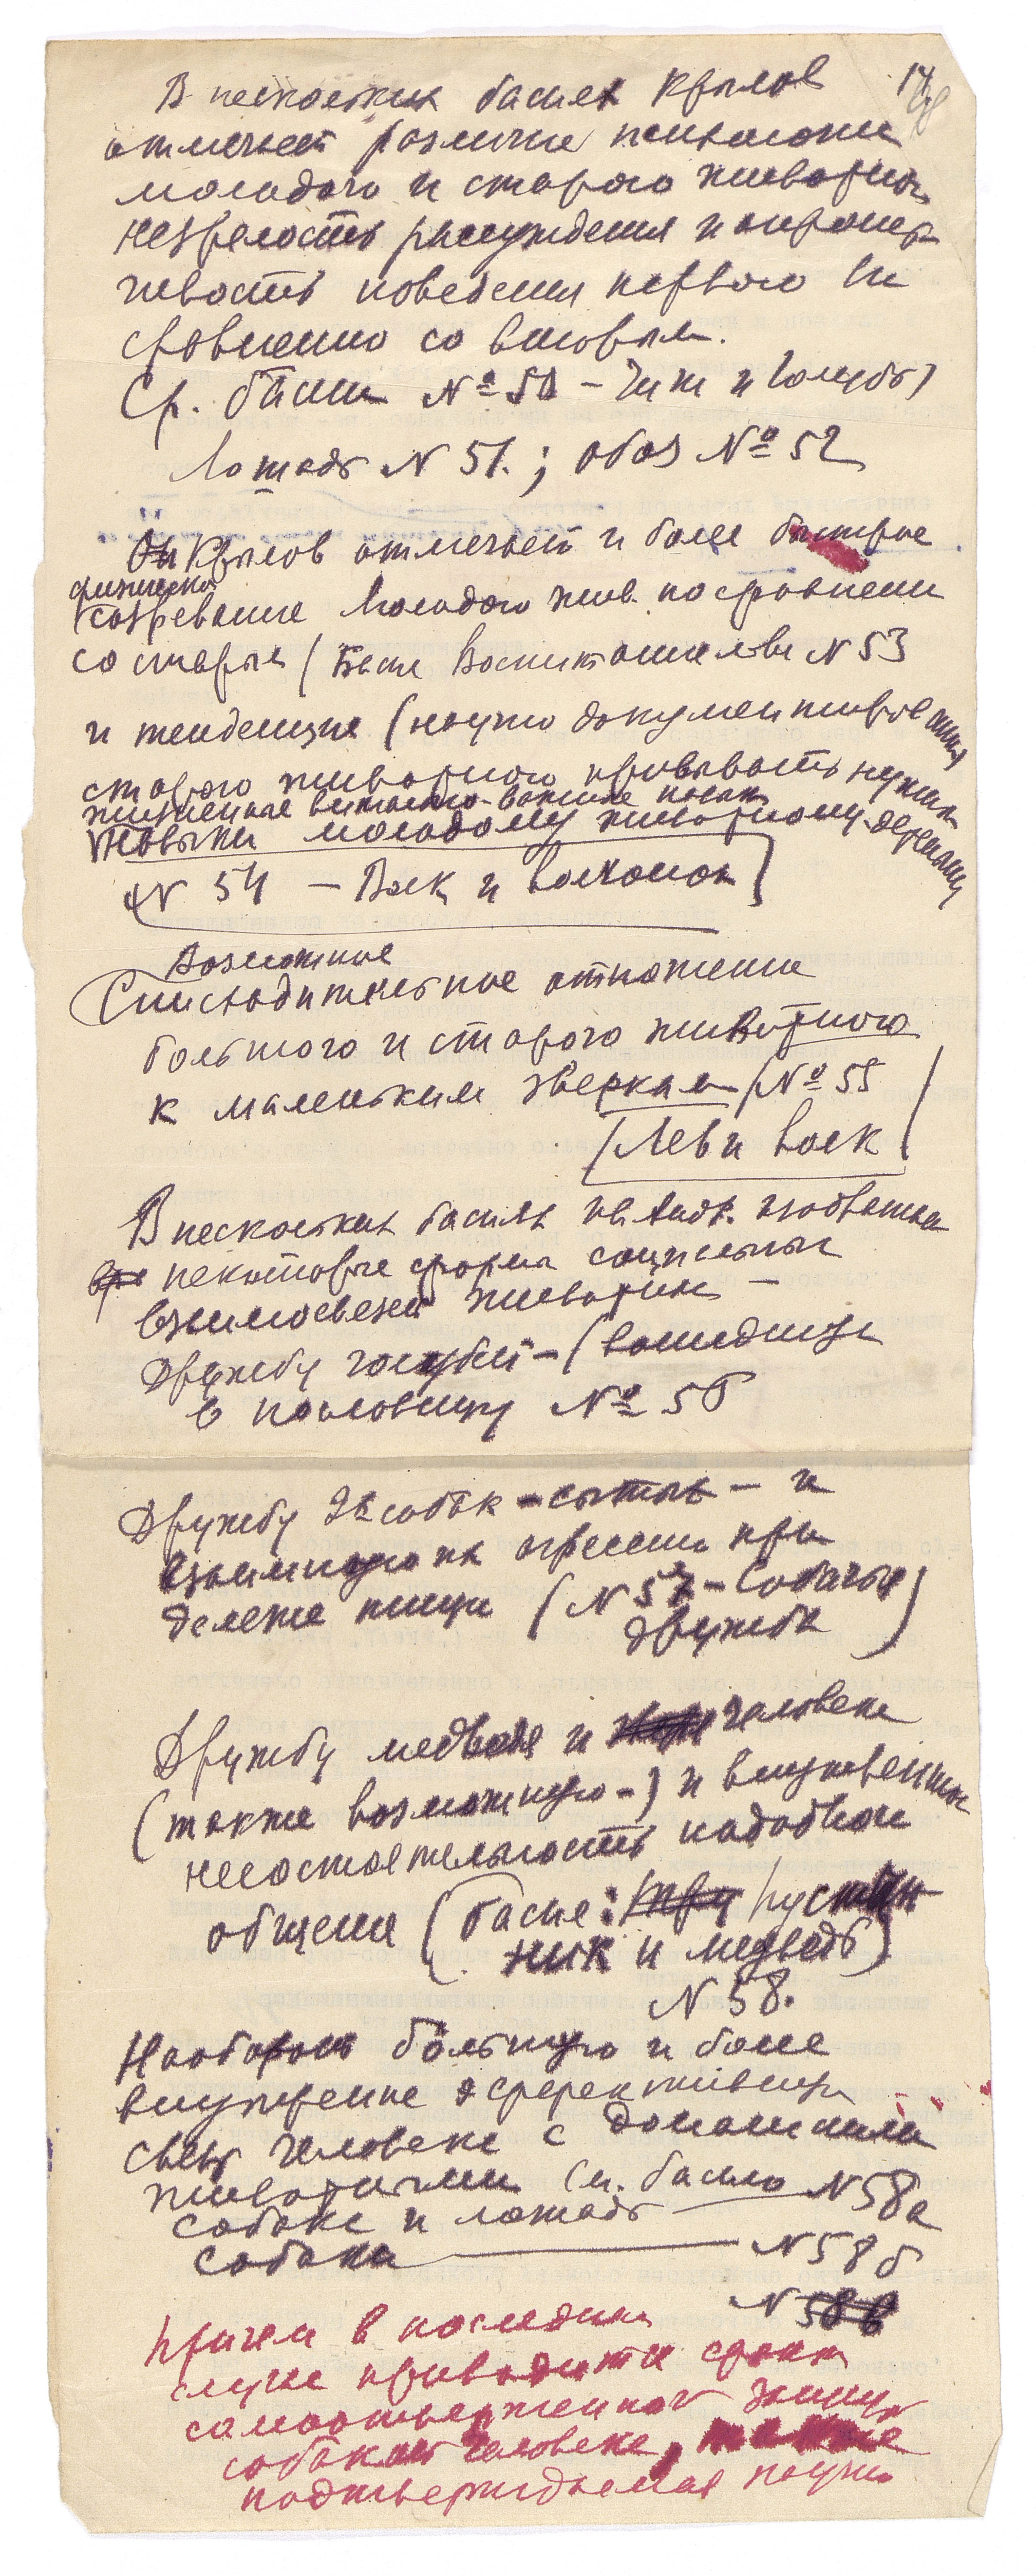 В нескольких баснях Крылов
отмечает различие психологии
молодого и старого животного
незрелость рассуждения и опромет
чивость поведения первого по
сравнению со вторым.
Ср. басни № 50 – Чиж и Голубь)
Лошадь N 51. ; Обоз № 52
Он Крылов отмечает и более быстрое
физическое
созревание молодого жив. по сравнени
со старым (Басня Воспитание льва N 53
и тенденцию (научно документирован
старого животного прививать нужные
жизненные витально-важные
навыки молодому животному-детенышу
N 54 – Волк и волчонок)
Возможное
Снисходительное отношение
большого и старого животного
к маленьким зверкам (№ 55
(Лев и волк)
В нескольких баснях Ив. Андр.
некоторые формы социальных
взаимосвязей животных –
Дружбу голубей – (вошедшую
в пословицу № 56
Дружбу 2х собак – сытых – и
взаимную их агрессию при
дележе пищи (N 57 – Собачья
дружба)
Дружбу медведя и человека
(также возможную –) и внутреннюю
несостоятельность подобного
общения (басня: Пустын
ник и медведь)
N 58.
Наоборот большую и более
внутренне эффективную
связь человека с домашними
животными см. басню N 58а
собака и лошадь
собака — N 58 б
N 58 в
Причем в последнем
случае приводится факт
самоотверженной защиты
собакой человека,
подтверждаемая научно